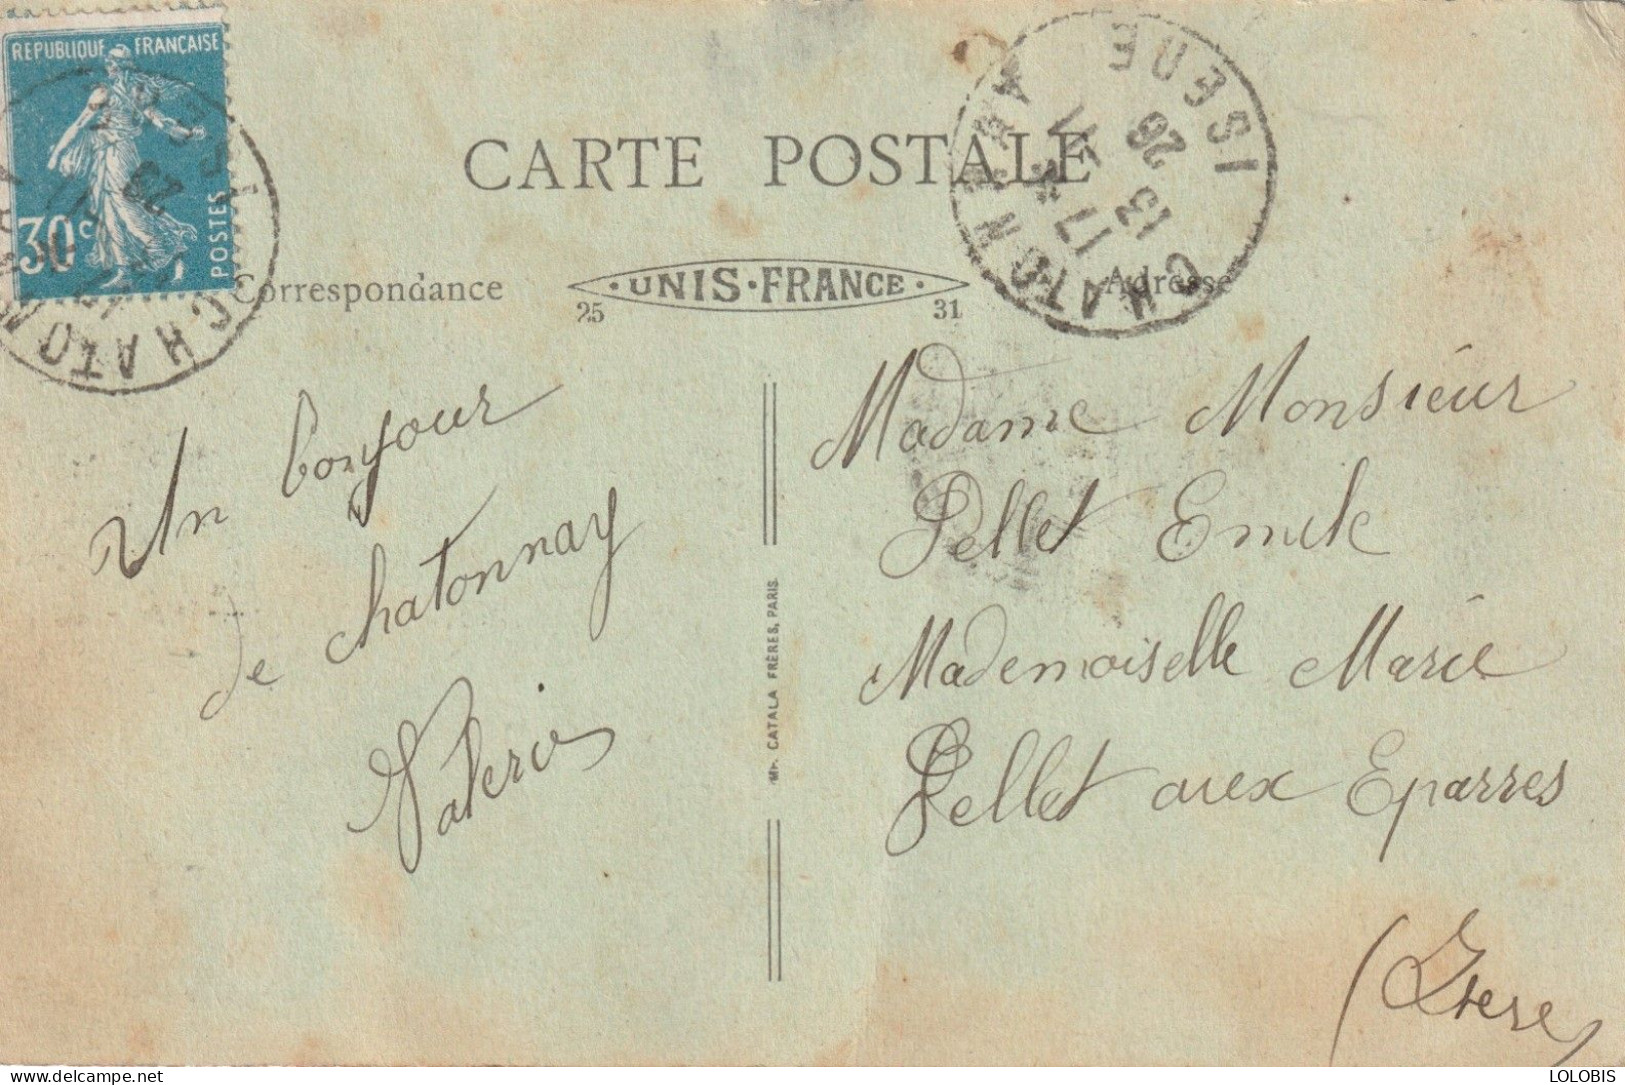 REPUBLIQUE FRANÇAISE
30c
POSTES
CHATONNAY
ISERE
17 *
13 - 11
26
CARTE POSTALE
Correspondance
·UNIS·FRANCE·
25 31
Adresse
Un bonjour
de chatonnay
Valerie
Mp. CATALA FRÈRES, PARIS
Madame Monsieur
Pellet Emile
Mademoiselle Marie
Pellet aux Eparres
(Isere)
LOLOBIS